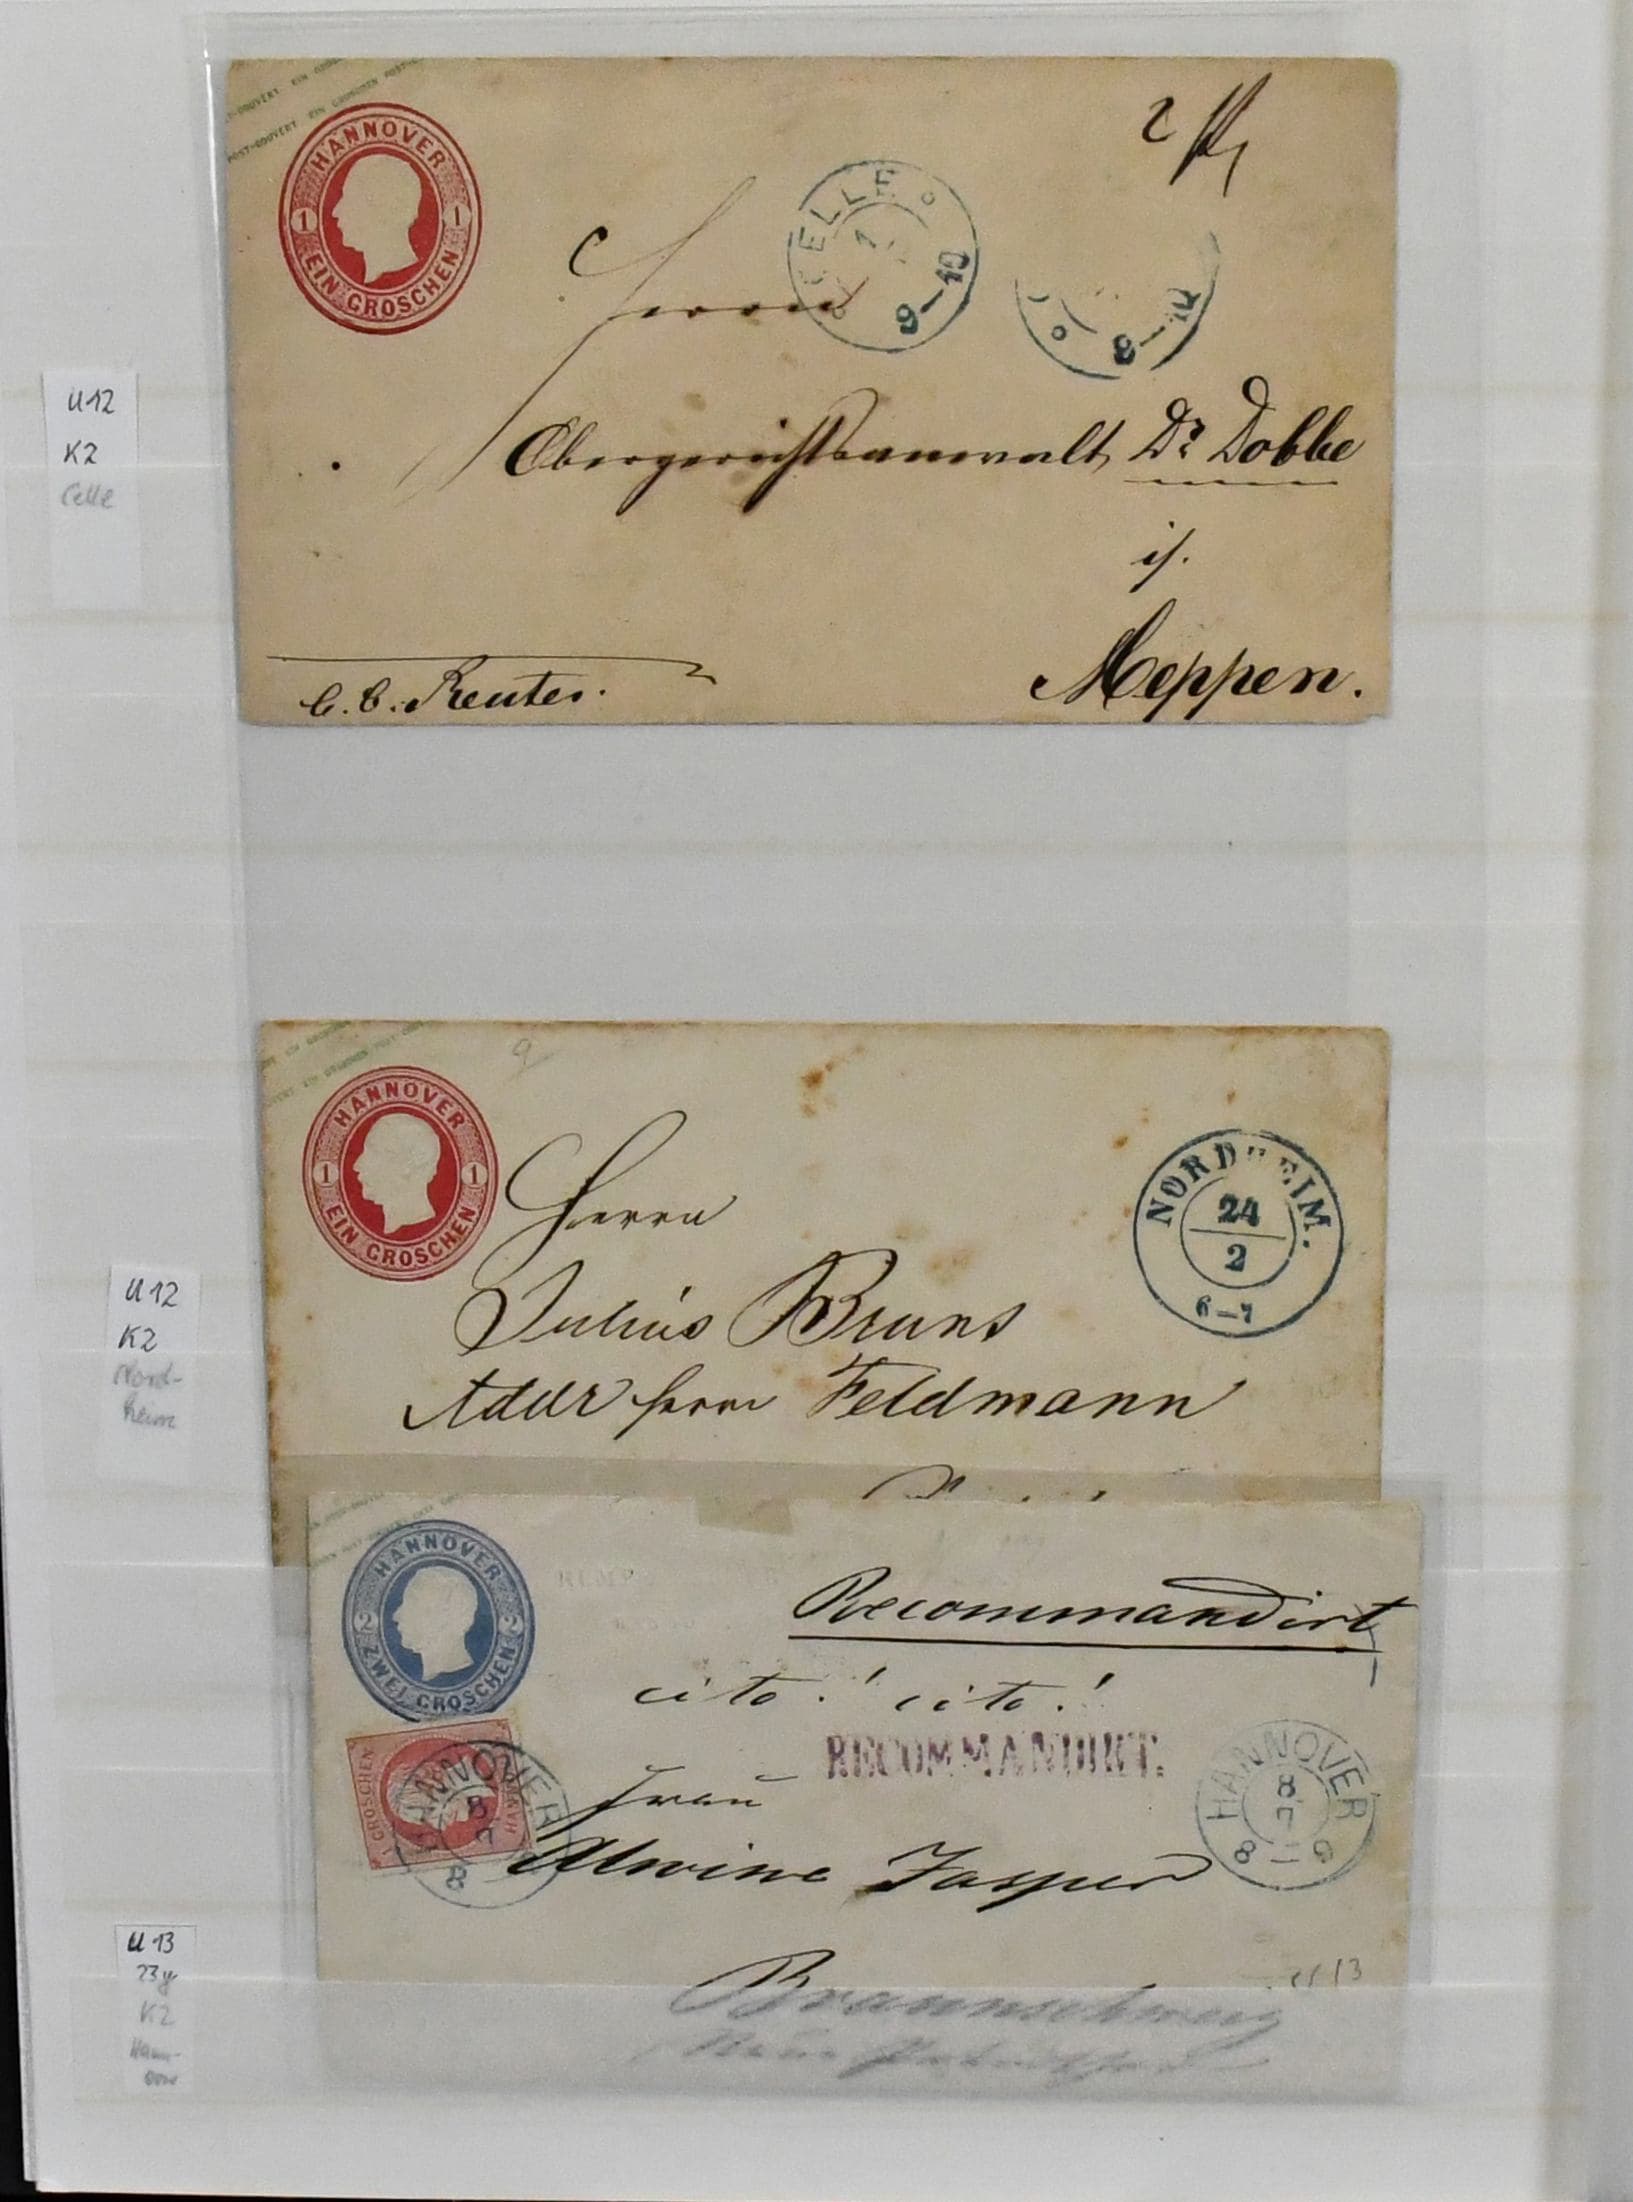 POST-COUVERT EIN GROSCHEN POST-
HANNOVER
1 1
EIN GROSCHEN
CELLE
9-10
8-10
Herrn
Obergerichtsanwalt Dr Dobbe
Meppen.
U12
K2
Celle
HANNOVER
1 1
EIN GROSCHEN
NORDHEIM.
24
2
6-7
Herrn
Julius Bruns
Addr Herrn Feldmann
U12
K2
Nord-
heim
HANNOVER
2 2
ZWEI GROSCHEN
Recommandirt
cito! cito!
RECOMMANDIRT.
1 GROSCHEN
HANNOVER
8
7
8
HANNOVER
8
7
8-9
Frau
Alwine Jasper
Braunschweig
U13
U13
23y
K2
Hann-
over